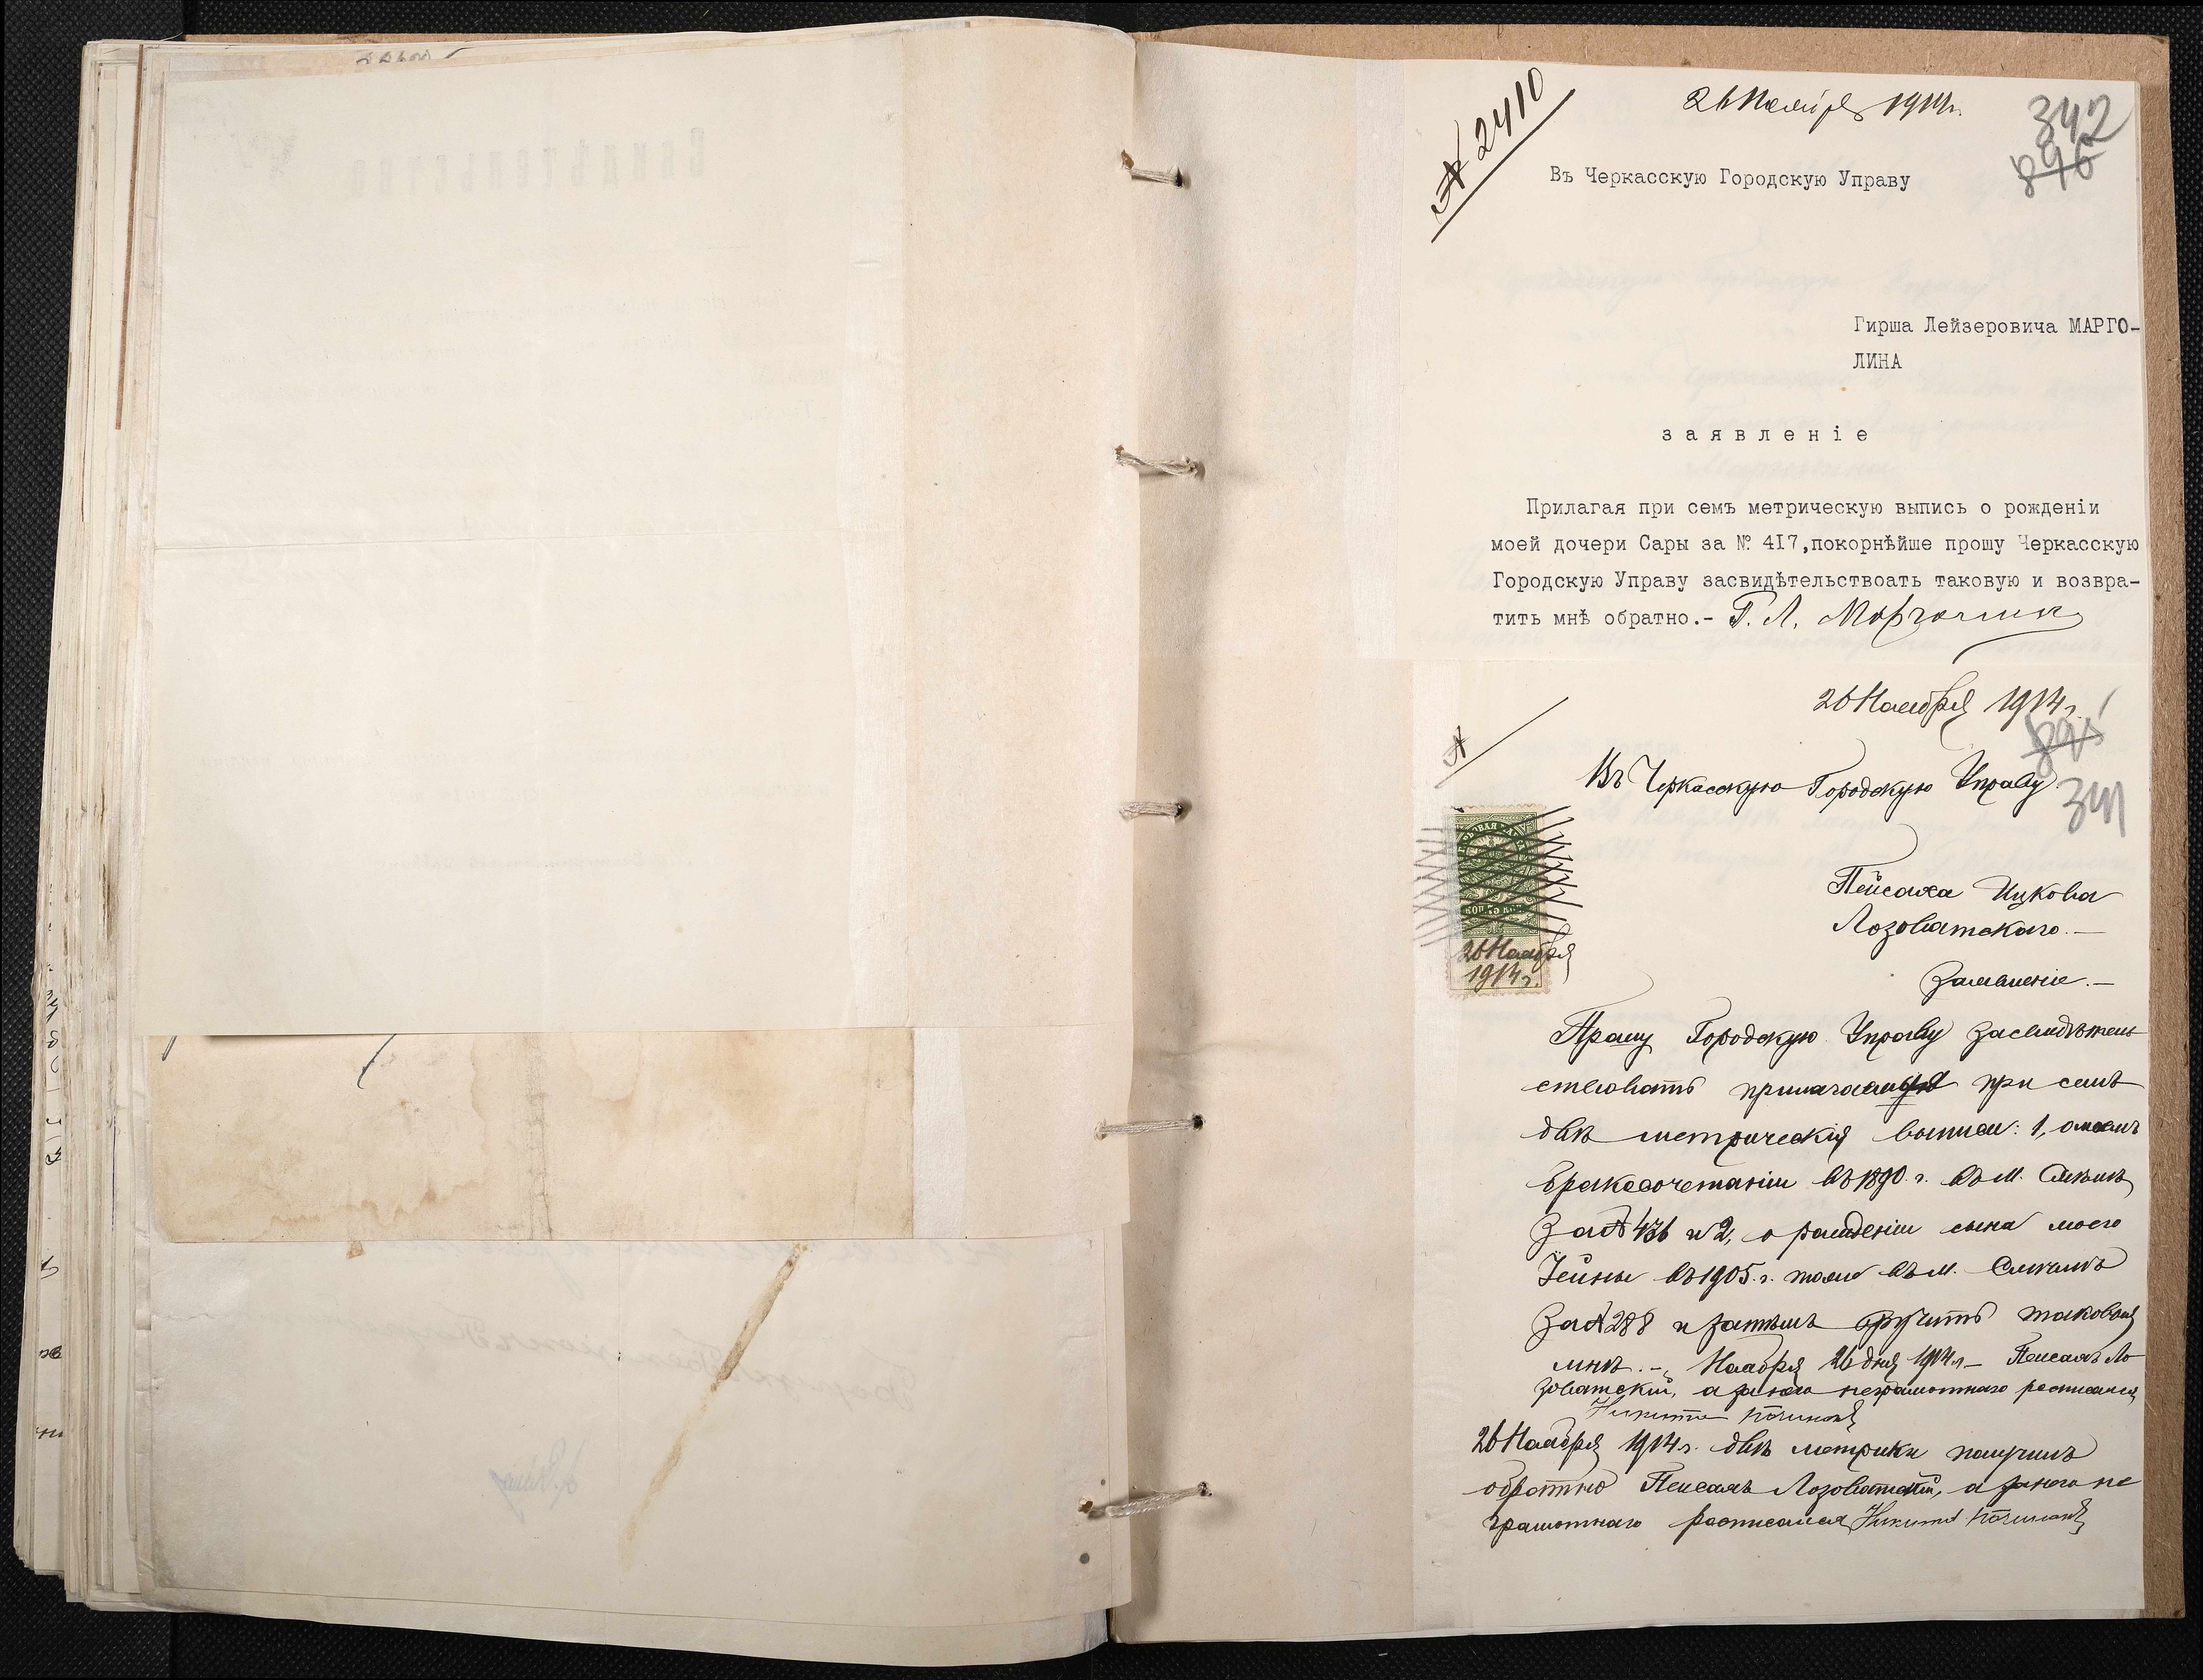 № 2410
26 Ноября 1914г.
342
896
Въ Черкасскую Городскую Управу
Гирша Лейзеровича МАРГО-
ЛИНА
заявленіе
Прилагая при семъ метрическую выпись о рожденіи
моей дочери Сары за № 417,покорнѣйше прошу Черкасскую
Городскую Управу засвидѣтельствоать таковую и возвра-
тить мнѣ обратно.- Г. Л. Марголинъ
26 Ноября 1914 г.
895
№
Въ Черкасскую Городскую Управу
341
Пейсаха Ицкова
Лозоватскаго.—
Заявленіе.—
26 Ноября
1914г.
Прошу Городскую Управу засвидѣтель
ствовать прилагаемыя при семъ
двѣ метрическія выписи: 1, о моемъ
бракосочетаніи въ 1890 г. въ м. Смѣлѣ
за № 436 и 2, о рожденіи сына моего
въ 1905.г. тоже въ м.
за № 288 и затѣмъ вручить таковыя
мнѣ.- Ноября 26 дня 1914 г.— Пейсахъ Ло
зоватскій, а за него неграмотнаго росписался
Никита
26 Ноября 1914 г. двѣ метрики получилъ
обратно Пейсахъ Лозоватскій, а за него не
грамотнаго росписался Никита